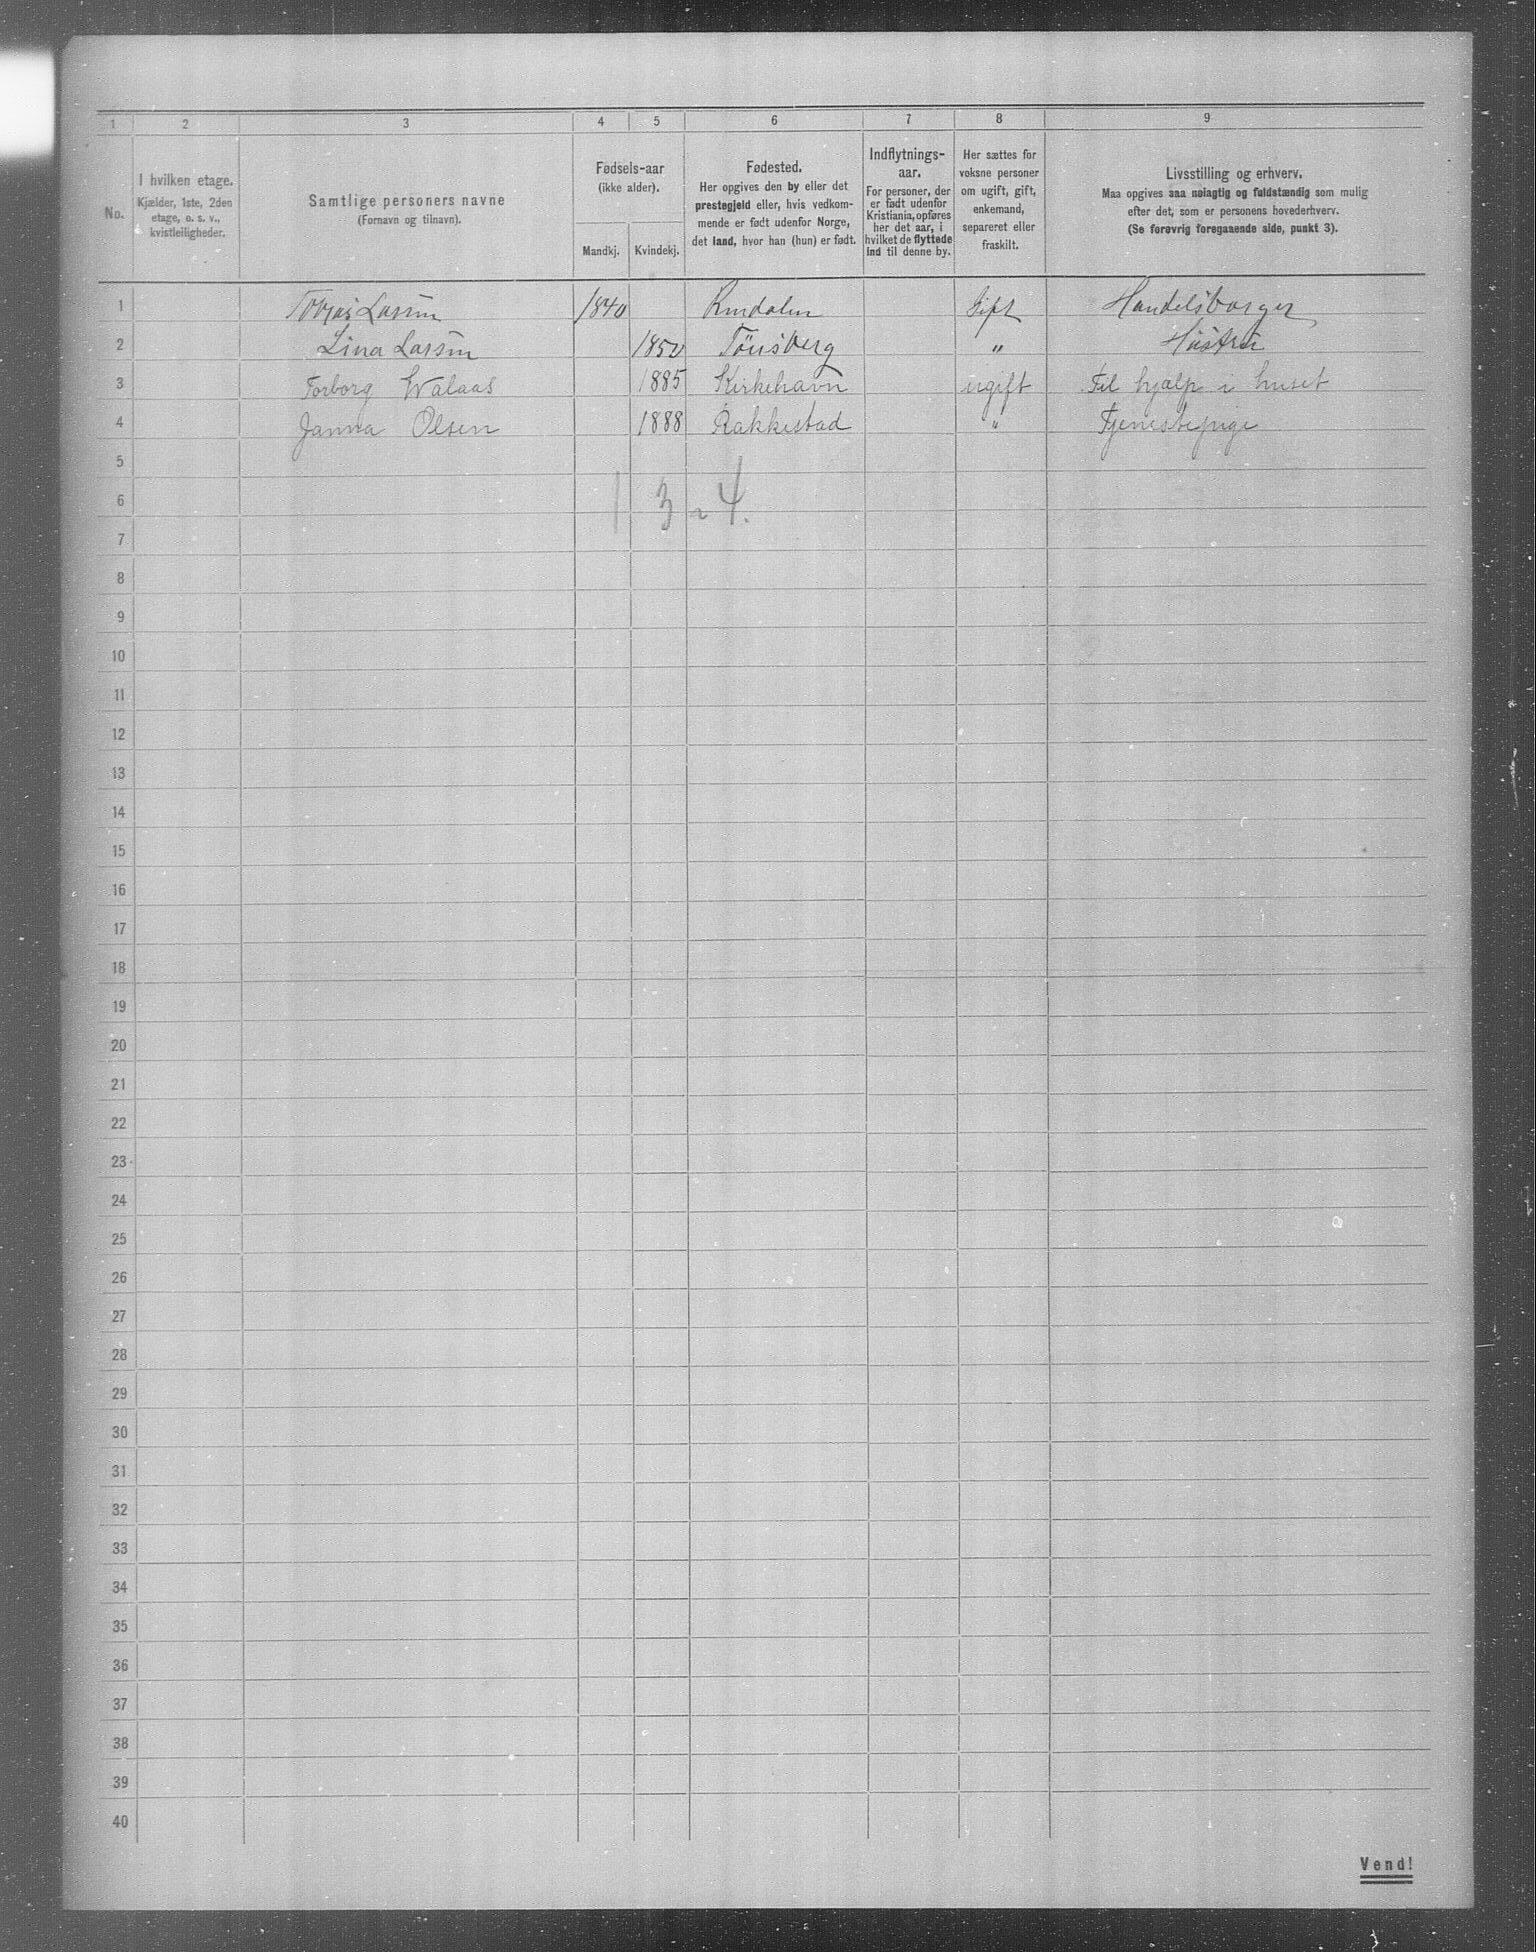 1 2 3 4 5 6 7 8 9
No.
I hvilken etage.
Kjælder, 1ste, 2den
etage, o. s. v.,
kvistleiligheder.
Samtlige personers navne
(Fornavn og tilnavn).
Fødsels-aar
(ikke alder).
Mandkj. Kvindekj.
Fødested.
Her opgives den by eller det
prestegjeld eller, hvis vedkom-
mende er født udenfor Norge,
det land, hvor han (hun) er født.
Indflytnings-
aar.
For personer, der
er født udenfor
Kristiania, opføres
her det aar, i
hvilket de flyttede
ind til denne by.
Her sættes for
voksne personer
om ugift, gift,
enkemand,
separeret eller
fraskilt.
Livsstilling og erhverv.
Maa opgives saa nøiagtig og fuldstændig som mulig
efter det, som er personens hovederhverv.
(Se forøvrig foregaaende side, punkt 3).
1 Tobias Larsen 1840 Gift Handelsborger
2 Lina Larsen 1852 Tönsberg " Hustru
3 Torborg Walaas 1885 Kirkehavn ugift Til hjælp i huset
4 Janna Olsen 1888 Rakkestad " Tjenestepige
5
6 1 3 = 4.
7
8
9
10
11
12
13
14
15
16
17
18
19
20
21
22
23
24
25
26
27
28
29
30
31
32
33
34
35
36
37
38
39
40
Vend!